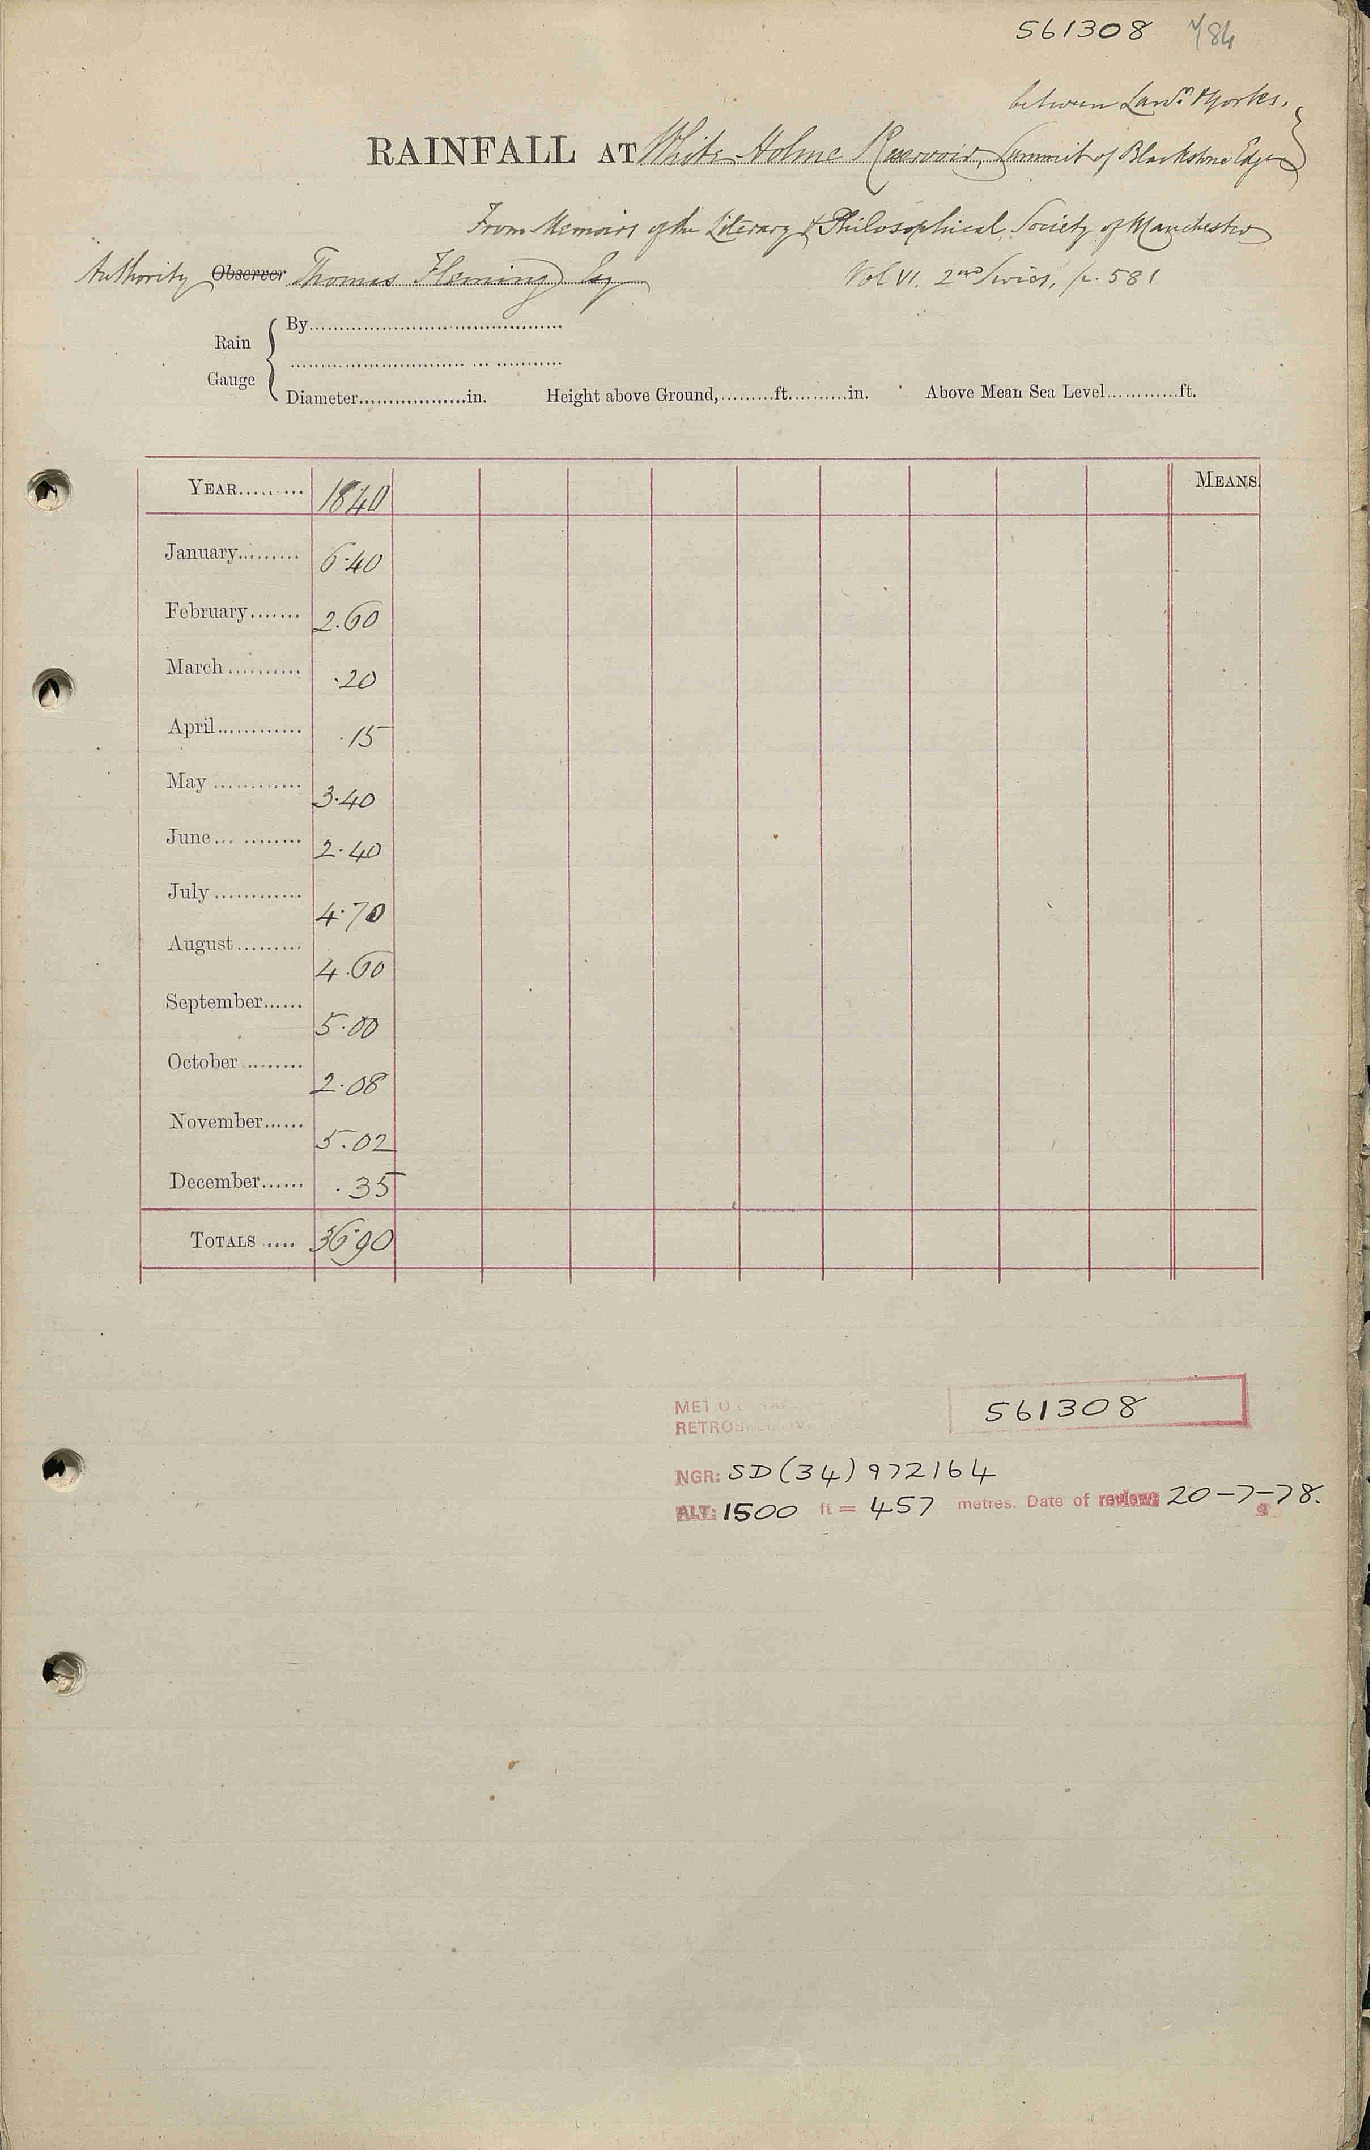 561308 784
between Lancr. & Yorks.
RAINFALL AT White Holme Reservoir, Summit of Blackstone Edge
From Memoirs of the Literary & Philosophical Society of Manchester
Authority Observer Thomas Fleming Esq Vol VI. 2nd Series, p. 581
Rain
Gauge
By
Diameter..................in. Height above Ground,.........ft..........in. Above Mean Sea Level............ft.
YEAR......... 1840 MEANS
January......... 6.40
February....... 2.60
March.......... .20
April............ .15
May ............ 3.40
June... ........ 2.40
July ............ 4.70
August ......... 4.60
September...... 5.00
October ......... 2.08
November...... 5.02
December...... .35
TOTALS ..... 36.90
561308
NGR: SD (34) 972164
ALT: 1500 ft = 457 metres. Date of review: 20-7-78.